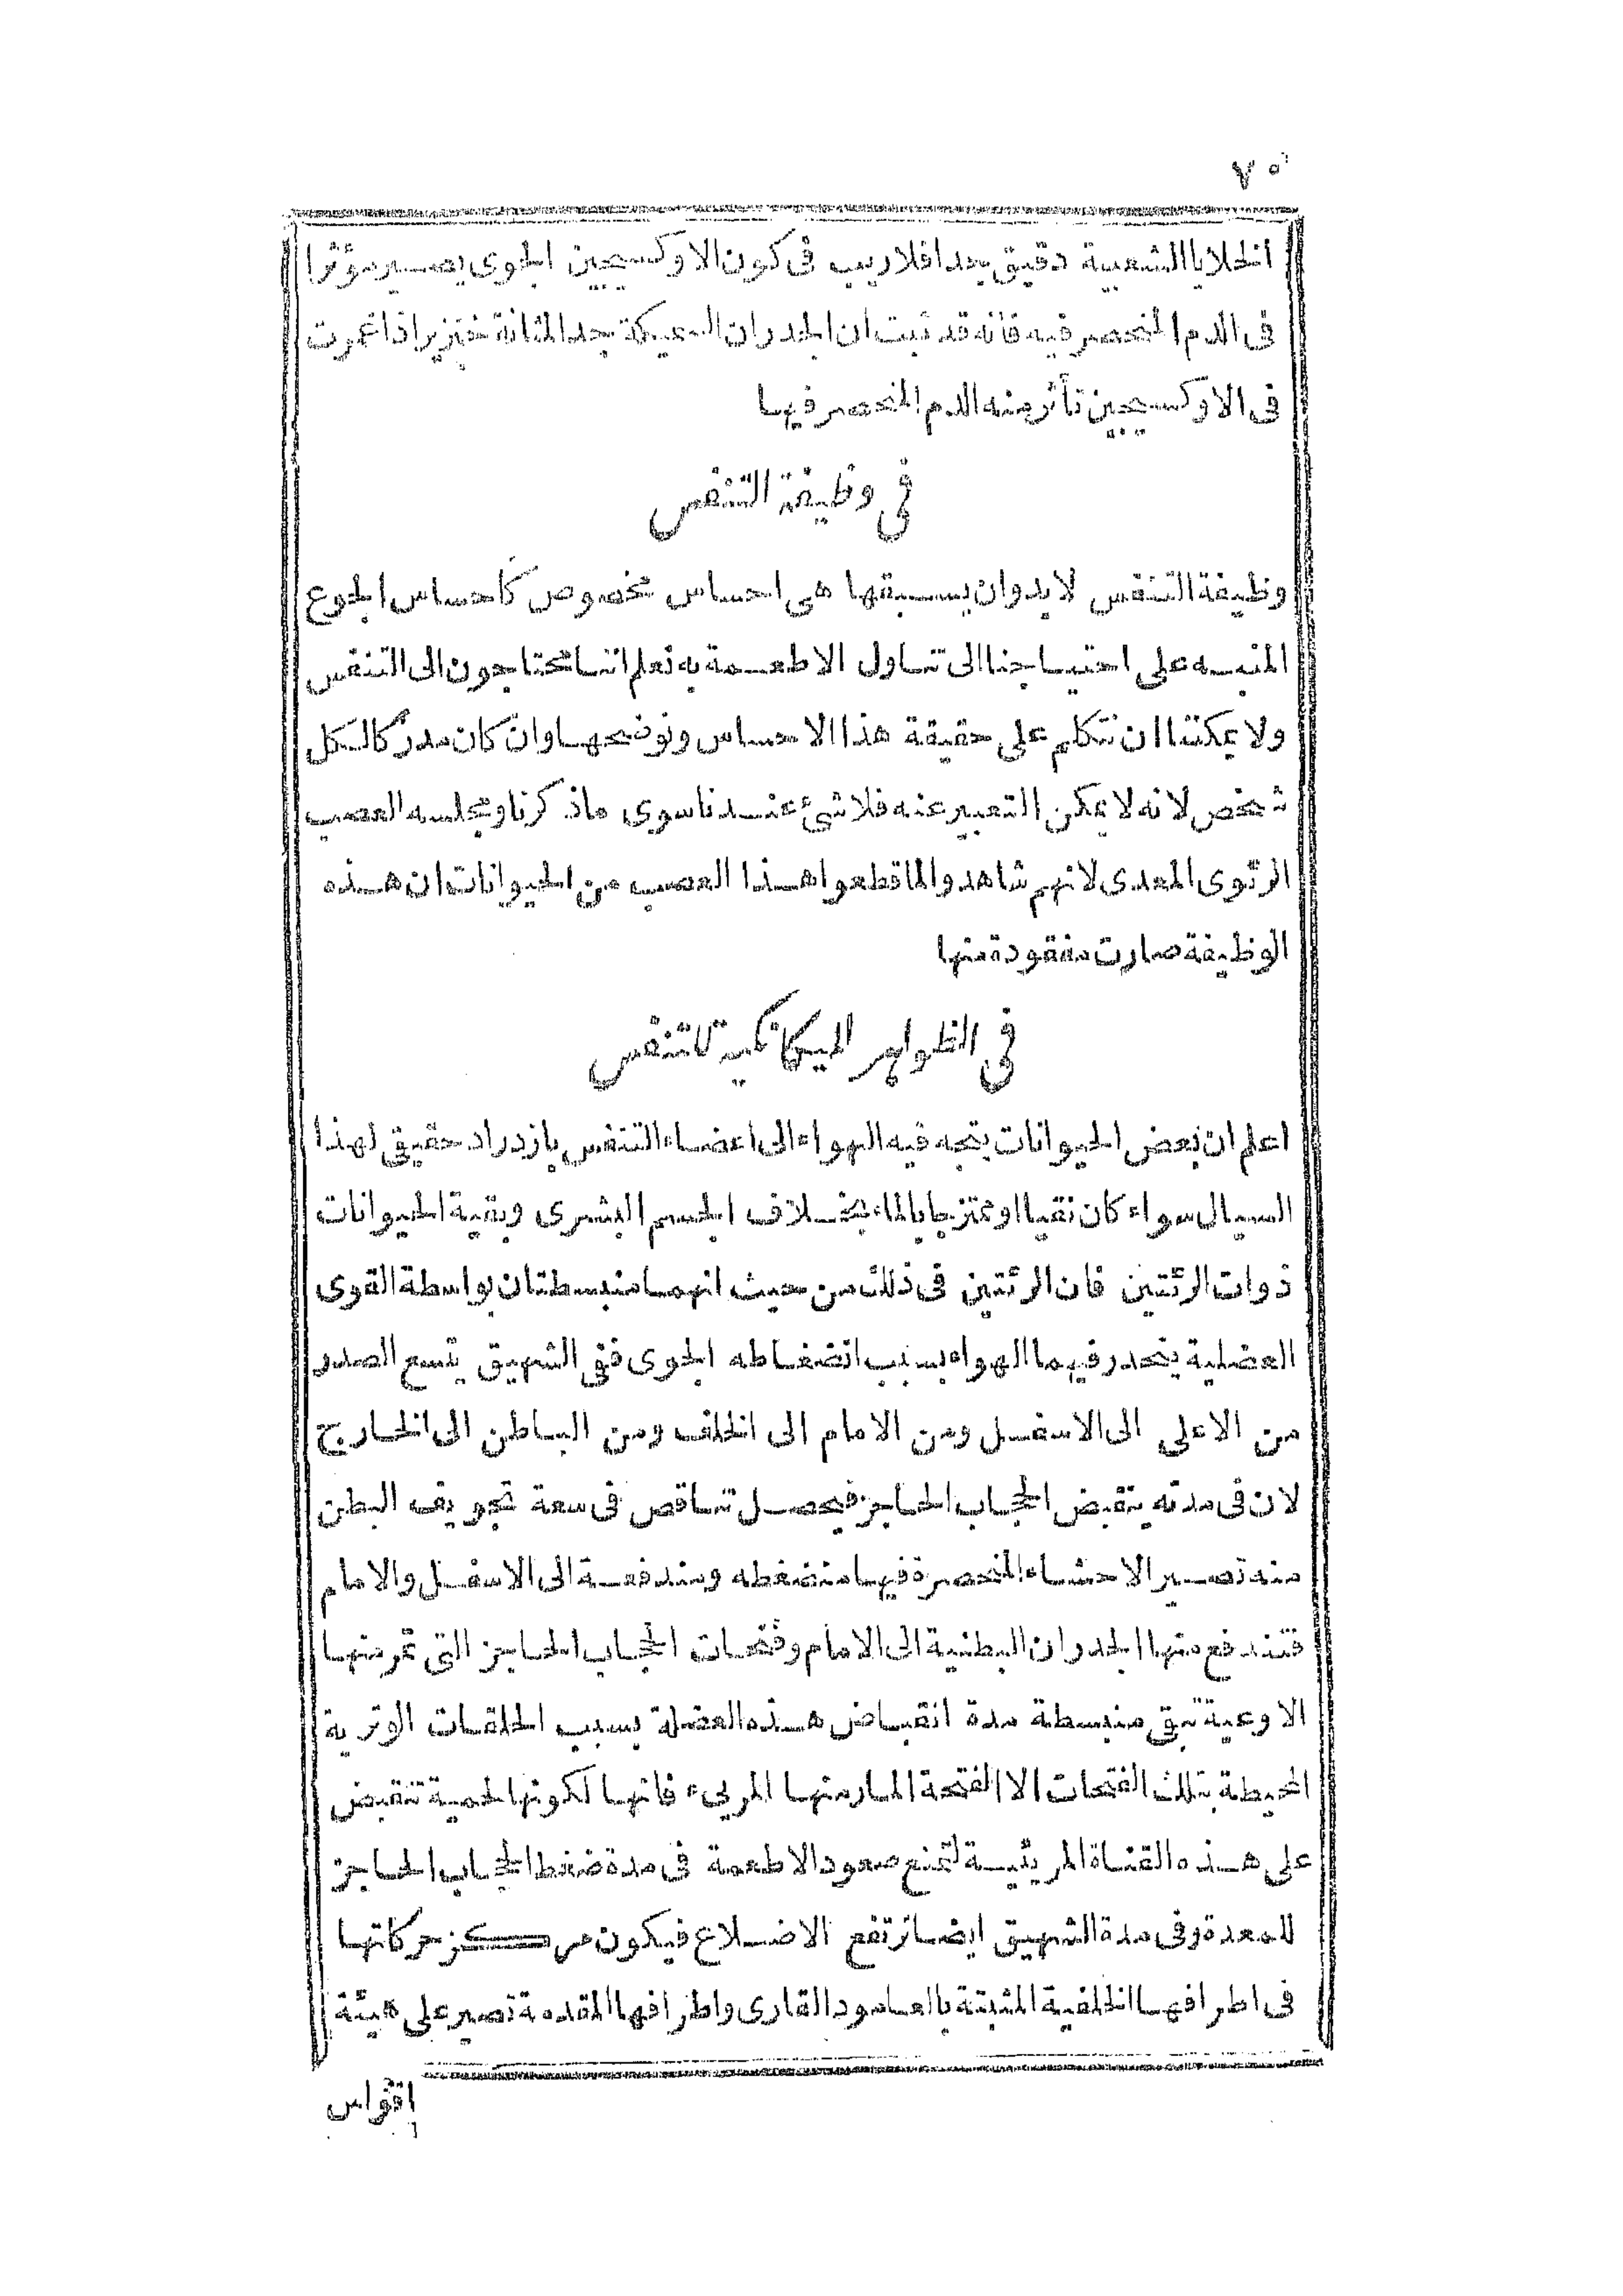 ٧٠
الخلايا الشعبية دقيق جدا فلا ريب فى كون الاوكسيجين الجوى يصير مؤثرا
فى الدم المنحصر فيه فانه قد ثبت ان الجدران السميكة جدا لمثانة خنزير اذا غمرت
فى الاوكسيجين تأثر منه الدم المنحصر فيها
فى وظيفة التنفس
وظيفة التنفس لا بد وان يسبقها هى احساس مخصوص كاحساس الجوع
المنبه على احتياجنا الى تناول الاطعمة به نعلم اننا محتاجون الى التنفس
ولا يمكننا ان نتكلم على حقيقة هذا الاحساس ونوضحها وان كان مدركا لكل
شخص لانه لا يمكن التعبير عنه فلا شئ عندنا سوى ماذكرنا ومجلسه العصب
الرئوى المعدى لانهم شاهدوا لما قطعوا هذا العصب من الحيوانات ان هذه
الوظيفة صارت مفقودة منها
فى الظواهر الميكانيكية للتنفس
اعلم ان بعض الحيوانات يتجه فيه الهواء الى اعضاء التنفس بازدراد حقيقى لهذا
السيال سواء كان نقيا او ممتزجا بالماء بخلاف الجسم البشرى وبقية الحيوانات
ذوات الرئتين فان الرئتين فى ذلك من حيث انهما منبسطتان بواسطة القوى
العضلية ينحدر فيهما الهواء بسبب انضغاطه الجوى ففى الشهيق يتسع الصدر
من الاعلى الى الاسفل ومن الامام الى الخلف ومن الباطن الى الخارج
لان فى مدته ينقبض الحجاب الحاجز فيحصل تناقص فى سعة تجويف البطن
منه تصير الاحشاء المنحصرة فيها منضغطه ومندفعة الى الاسفل والامام
فتندفع منها الجدران البطنية الى الامام وفتحات الحجاب الحاجز التى تمر منها
الاوعية تبقى منبسطة مدة انقباض هذه العضلة بسبب الحلقات الوترية
المحيطة بتلك الفتحات الا الفتحة المار منها المرىء فانها لكونها لحمية تنقبض
على هذه القناة المريئية لتمنع صعود الاطعمة فى مدة ضغط الحجاب الحاجز
للمعدة وفى مدة الشهيق ايضا ترتفع الاضلاع فيكون مركز حركاتها
فى اطرافها الخلفية المثبتة بالعامود القارى واطرافها المقدمة تصير على هيئة
اقواس